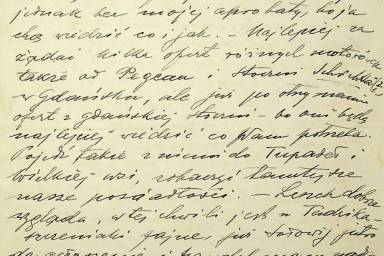 jednak bez mojej aprobaty, bo ja
chcę wiedzieć co i jak. – Najlepiej za
żądać kilka ofert różnych motorów
także od Pegeau i Stoczni
w Gdańsku, ale już po otrzymaniu
ofert z gdańskiej stoczni – bo oni będą
najlepiej wiedzieć co Wam potrzeba.
Pojedź także z nimi do Tupadeł i
Wielkiej wsi, pokazać tamtejsze
nasze posiadłości. – Leszek dobrze
wygląda, w tej chwili jest u Tadzika –
szczeniaki fajne, już jutro